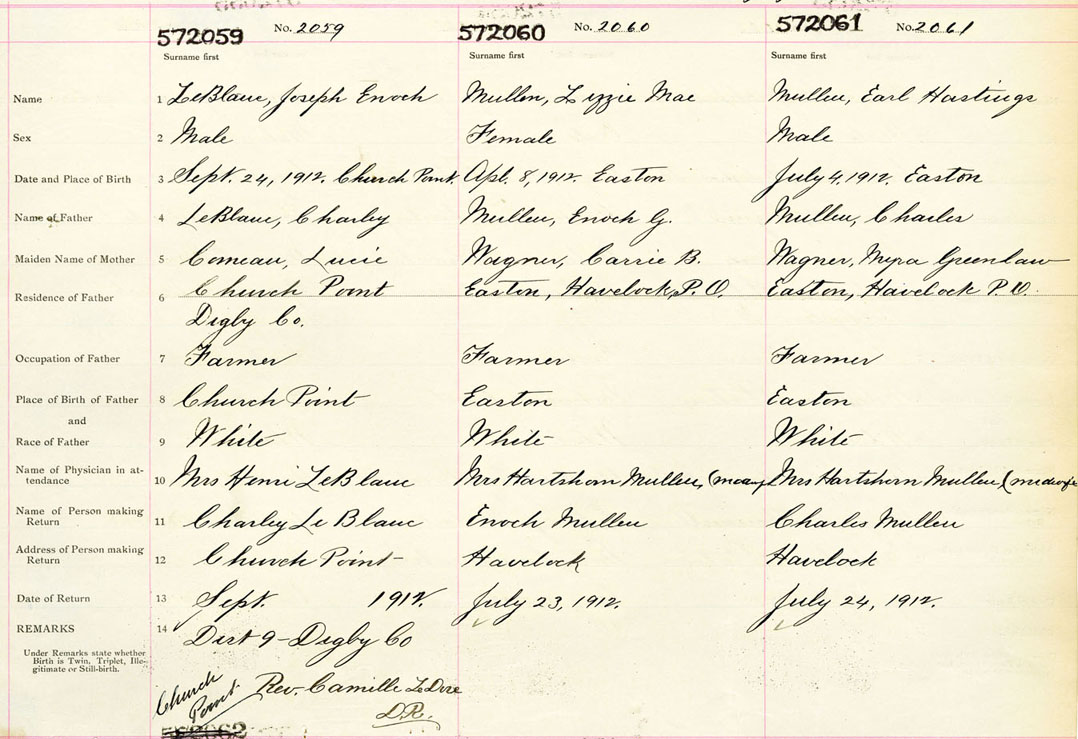 572059 No. 2059 572060 No. 2060 572061 No. 2061
Surname first Surname first Surname first
Name 1 LeBlanc, Joseph Enoch Mullen, Lizzie Mae Mullen, Earl Hastings
Sex 2 Male Female Male
Date and Place of Birth 3 Sept. 24, 1912. Church Point. Apl. 8, 1912. Easton July 4, 1912. Easton
Name of Father 4 LeBlanc, Charley Mullen, Enoch G. Mullen, Charles
Maiden Name of Mother 5 Comeau, Lucie Wagner, Carrie B. Wagner, Myra Greenlaw
Residence of Father 6 Church Point Easton, Havelock, P. O. Easton, Havelock P. O.
Digby Co.
Occupation of Father 7 Farmer Farmer Farmer
Place of Birth of Father 8 Church Point Easton Easton
and
Race of Father 9 White White White
Name of Physician in at-
tendance 10 Mrs Henri LeBlanc Mrs Hartshorn Mullen, Mrs Hartshorn Mullen (midwife
Name of Person making
Return 11 Charley Le Blanc Enoch Mullen Charles Mullen
Address of Person making
Return 12 Church Point Havelock Havelock
Date of Return 13 Sept. 1912. July 23, 1912. July 24, 1912.
REMARKS 14 Dist 9 - Digby Co
Under Remarks state whether
Birth is Twin, Triplet, Ille-
gitimate or Still-birth.
Church
Point Rev. Camille LeDore
D.R.